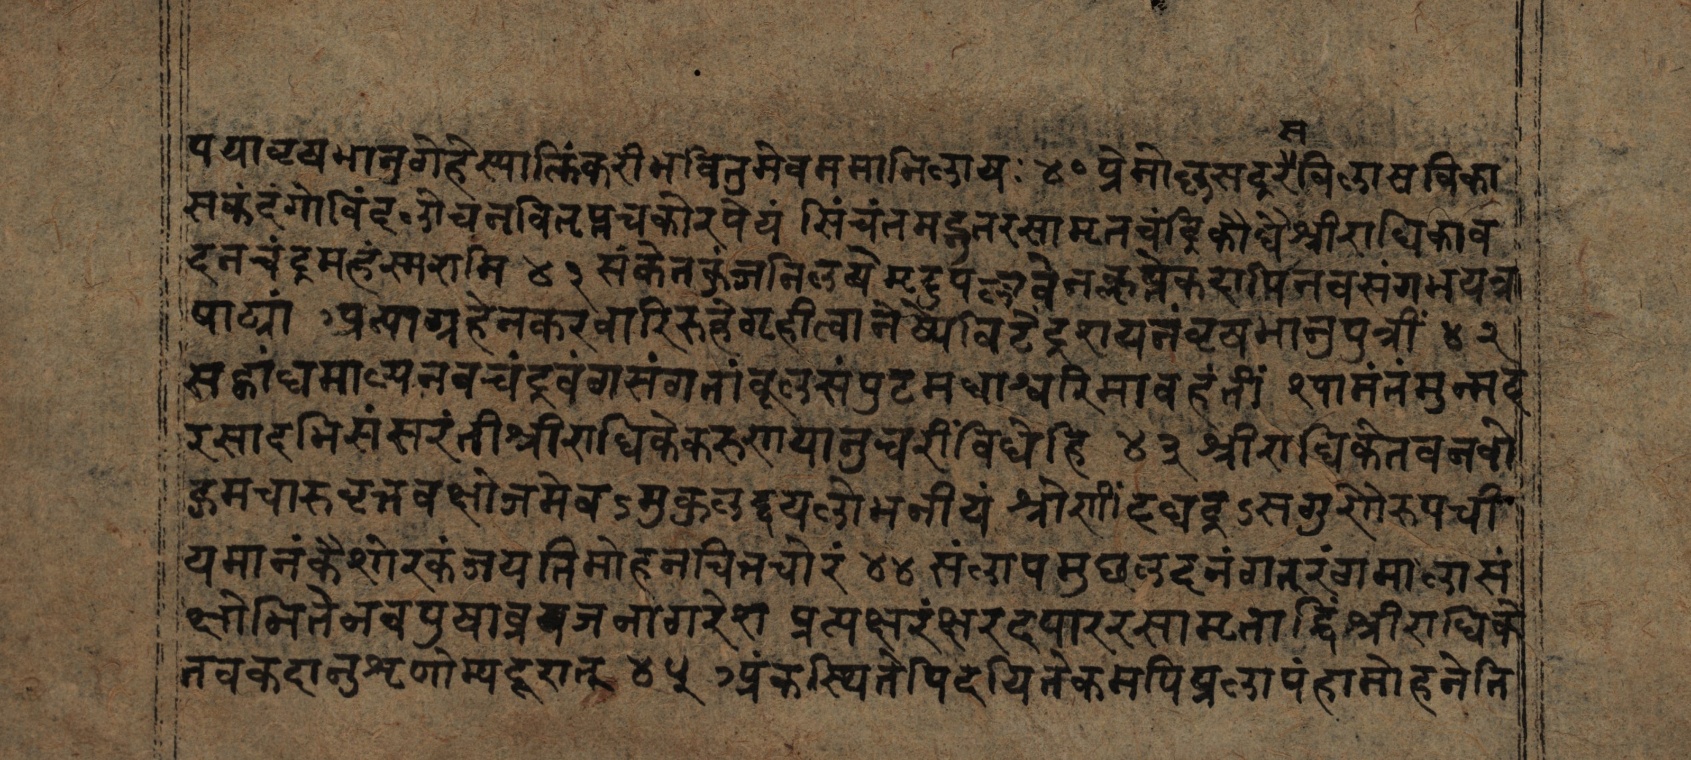 स
पयावृषभानुगेहेस्यात्किंकरीभवितुमेवममाभिलाषः ४० प्रेमोल्लसद्रसविलासविका
सकंदंगोविंदलोचनवितृप्तचकोरपेयं सिंचंतमद्भुतरसामृतचंद्रिकौघैश्रीराधिकाव
दनचंद्रमहंस्मरामि ४१ संकेतकुंजनिलयेमृदुपल्लवेनक्लृप्तेकदापिनवसंगमभयत्र
पाढ्यां ऽत्याग्रहेनकरवारिरुहेगृहीत्वानेष्येविटेंद्रशयनंवृषभानुपुत्रीं ४२
सद्गंधमाल्यनवचंद्रवंगसंगतांबूलसंपुटमधीश्वरिमावहंतीं श्यामंतंमुन्मद
रसादभिसंसरंतीश्रीराधिकेकरुणयानुचरींविधेहि ४३ श्रीराधिकेतवनवो
द्गमचारुवृत्तवक्षोजमेवऽमुकुलद्वयलोभनीयं श्रोणींदधद्रऽसगुणैरुपची
यमानंकैशोरकंजयतिमोहनचित्तचोरं ४४ संलापमुछलदनंगतरंगमालासं
क्षोभितेनवपुषाव्रजनागरेण प्रत्यक्षरंक्षरदपाररसामृताब्धिंश्रीराधिके
तवकदानुशृणोम्यदूरात् ४५ ऽंकस्थितेपिदयितेकमपिप्रलापंहामोहनेति